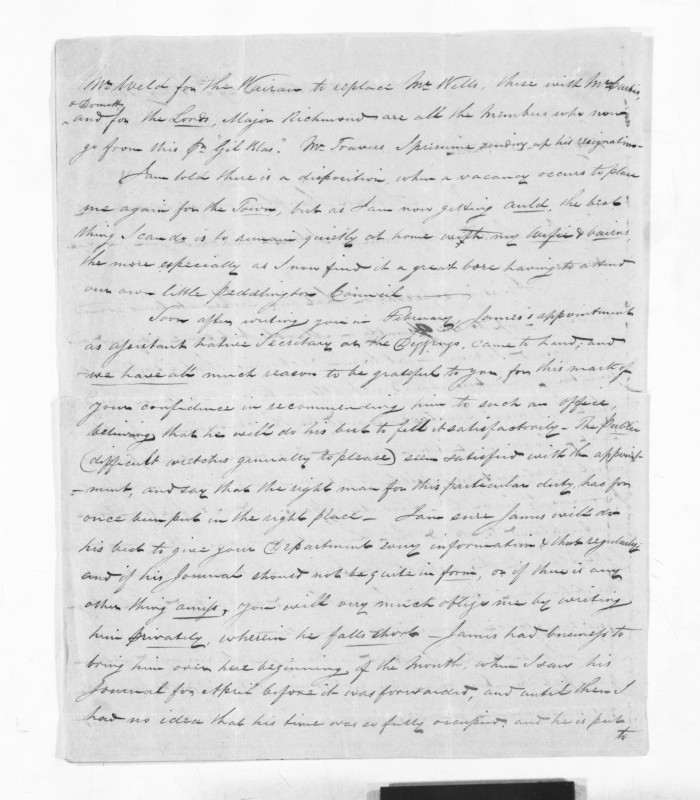 Mr Weld for the Wairau to replace Mr Wells, these with Mr Curtis,
& Domett
and for the Lords, Major Richmond are all the members who now
go from this pr "Gil Blas." Mr Travers I presume sending up his resignation—
I am told there is a disposition, when a vacancy occurs to place
me again for the Town, but as I am now getting auld, the best
thing I can do is to remain quietly at home with my wifie & bairns,
the more especially as I now find it a great bore having to attend
our own little Peddlington Council —
Soon after writing you in February, James's appointment
as assistant Native Secretary at the Diggings, came to hand, and
we have all much reason to be grateful to you, for this mark of
your confidence in recommending him to such an office
believing that he will do his best to fill it satisfactorily — The
(difficult wretches generally to please) seem satisfied with the appoint-
-ment, and say that the right man for this particular duty, has for
once been put in the right place — I am sure James will do
his best to give your Department every information & that regularly
and if his Journal should not be quite in form, or if there is any
other thing amiss, you will very much oblige me by writing
him privately, wherein he falls short — James had business to
bring him over here beginning of the month, when I saw his
Journal for April before it was forwarded, and until then I
had no idea that his time was so fully occupied, and he is put
to